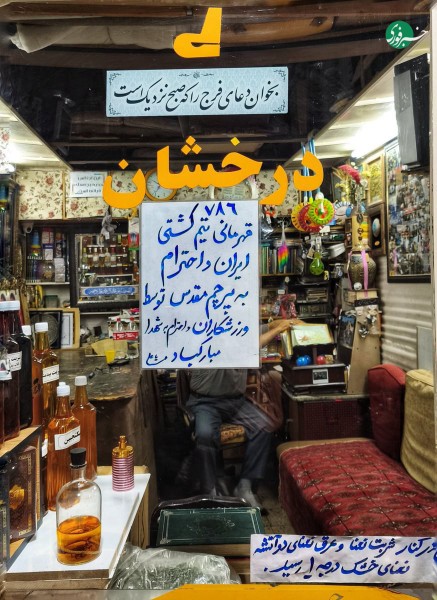 خبرفوری
بخوان دعای فرج را که صبح نزدیک است
درخشان
۷۸۶
قهرمانی تیم کشتی
ایران و احترام
به پرچم مقدس توسط
ورزشکاران و احترام به شهدا
مبارکباد
سکنجبین
در کنار شربت نعنا و عرق نعنای دوآتشه
نعنای خشک درجه ۱ رسید.